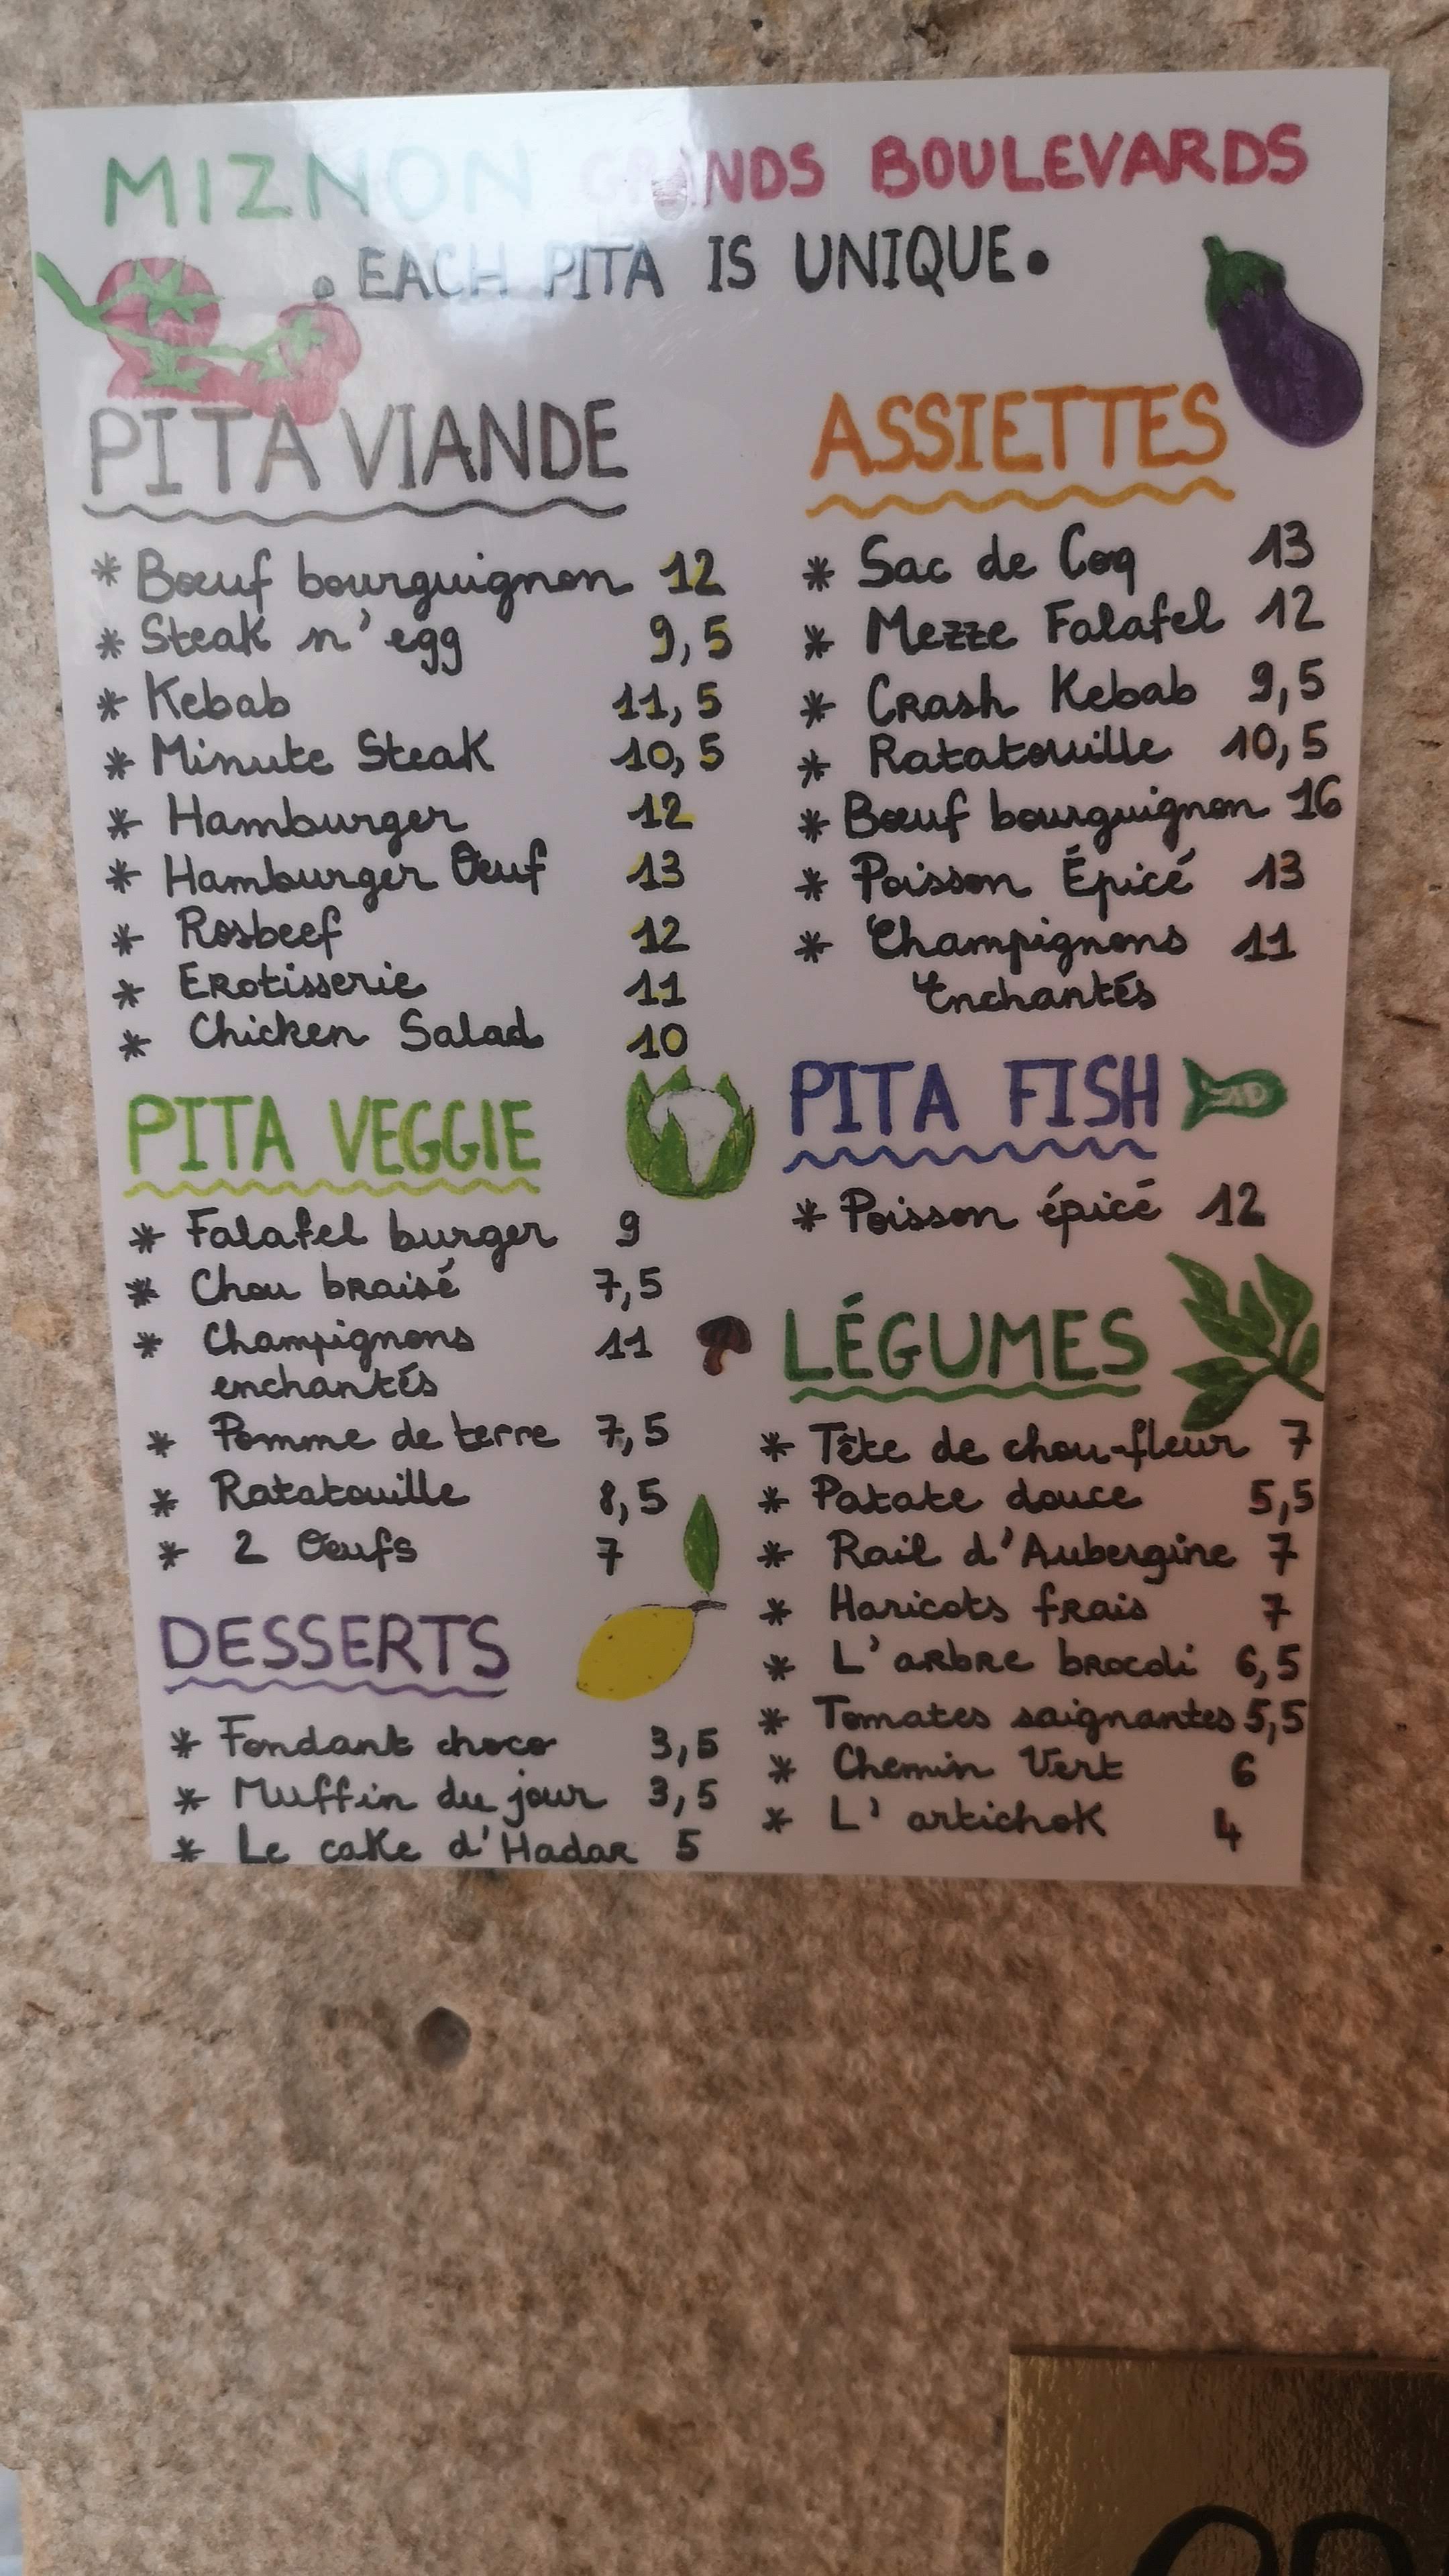 MIZNON GRANDS BOULEVARDS
. EACH PITA IS UNIQUE.
PITA VIANDE
* Bœuf bourguignon 12
* Steak n'egg 9,5
* Kebab 11,5
* Minute Steak 10,5
* Hamburger 12
* Hamburger Œuf 13
* Rosbeef 12
* ERotisserie 11
* Chicken Salad 10
PITA VEGGIE
* Falafel burger 9
* Chou braisé 7,5
* Champignons 11
enchantés
* Pomme de terre 7,5
* Ratatouille 8,5
* 2 Œufs 7
DESSERTS
* Fondant choco 3,5
* Muffin du jour 3,5
* Le cake d'Hadar 5
ASSIETTES
* Sac de Coq 13
* Mezze Falafel 12
* Crash Kebab 9,5
* Ratatouille 10,5
* Bœuf bourguignon 16
* Poisson Épicé 13
* Champignons 11
Enchantés
PITA FISH
* Poisson épicé 12
LÉGUMES
* Tête de chou-fleur 7
* Patate douce 5,5
* Rail d'Aubergine 7
* Haricots frais 7
* L'arbre brocoli 6,5
* Tomates saignantes 5,5
* Chemin Vert 6
* L'artichok 4